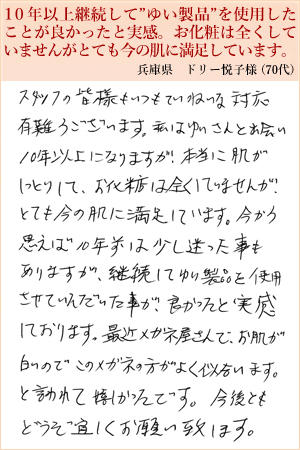 10年以上継続して”ゆい製品”を使用した
ことが良かったと実感。お化粧は全くして
いませんがとても今の肌に満足しています。
兵庫県　ドリー悦子様（70代）
スタッフの皆様もいつもていねいな対応
有難うございます。私はゆいさんとお会い
10年以上になりますが、本当に肌が
しっとりして、お化粧は全くしていませんが、
とても今の肌に満足しています。今から
思えば10年前は少し迷った事も
ありますが、継続してゆい製品を使用
させていただいた事が、良かったと実感
しております。最近メガネ屋さんで、お肌が
白いのでこのメガネの方がよく似合います。
と言われて嬉しかったです。今後とも
どうぞ宜しくお願い致します。